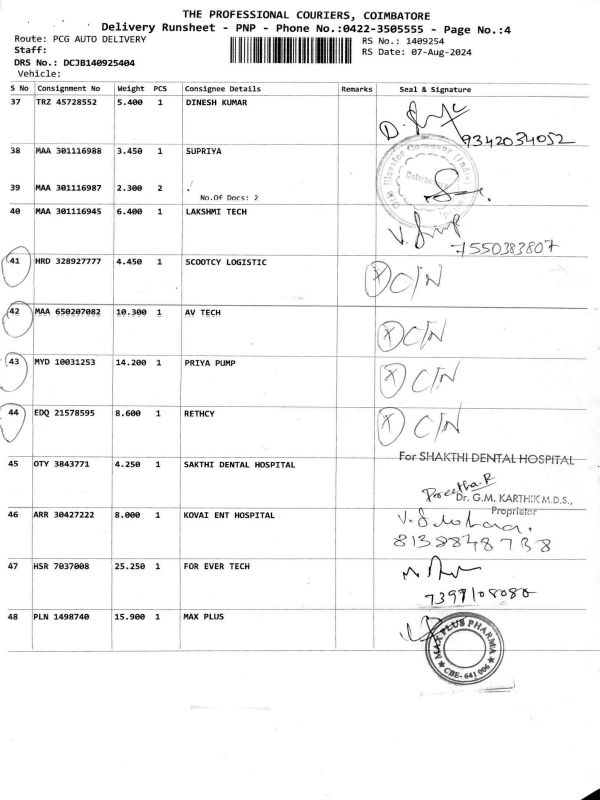 THE PROFESSIONAL COURIERS, COIMBATORE
Delivery Runsheet - PNP - Phone No.:0422-3505555 - Page No.:4
Route: PCG AUTO DELIVERY
RS No.: 1409254
Staff:
RS Date: 07-Aug-2024
DRS No.: DCJB140925404
Vehicle:
S No Consignment No Weight PCS Consignee Details Remarks Seal & Signature
37 TRZ 45728552 5.400 1 DINESH KUMAR
9342034052
38 MAA 301116988 3.450 1 SUPRIYA
39 MAA 301116987 2.300 2 .
No.Of Docs: 2
Coimbatore
40 MAA 301116945 6.400 1 LAKSHMI TECH
7550383807
41 HRD 328927777 4.450 1 SCOOTCY LOGISTIC
X C/N
42 MAA 650207082 10.300 1 AV TECH
X C/N
43 MYD 10031253 14.200 1 PRIYA PUMP
X C/N
44 EDQ 21578595 8.600 1 RETHCY
X C/N
For SHAKTHI DENTAL HOSPITAL
45 OTY 3843771 4.250 1 SAKTHI DENTAL HOSPITAL
Preetha.R
Dr. G.M. KARTHIK M.D.S.,
Proprietor
46 ARR 30427222 8.000 1 KOVAI ENT HOSPITAL
8138848738
47 HSR 7037008 25.250 1 FOR EVER TECH
7397108080
48 PLN 1498740 15.900 1 MAX PLUS
MAX PLUS PHARMA
CBE- 641 006